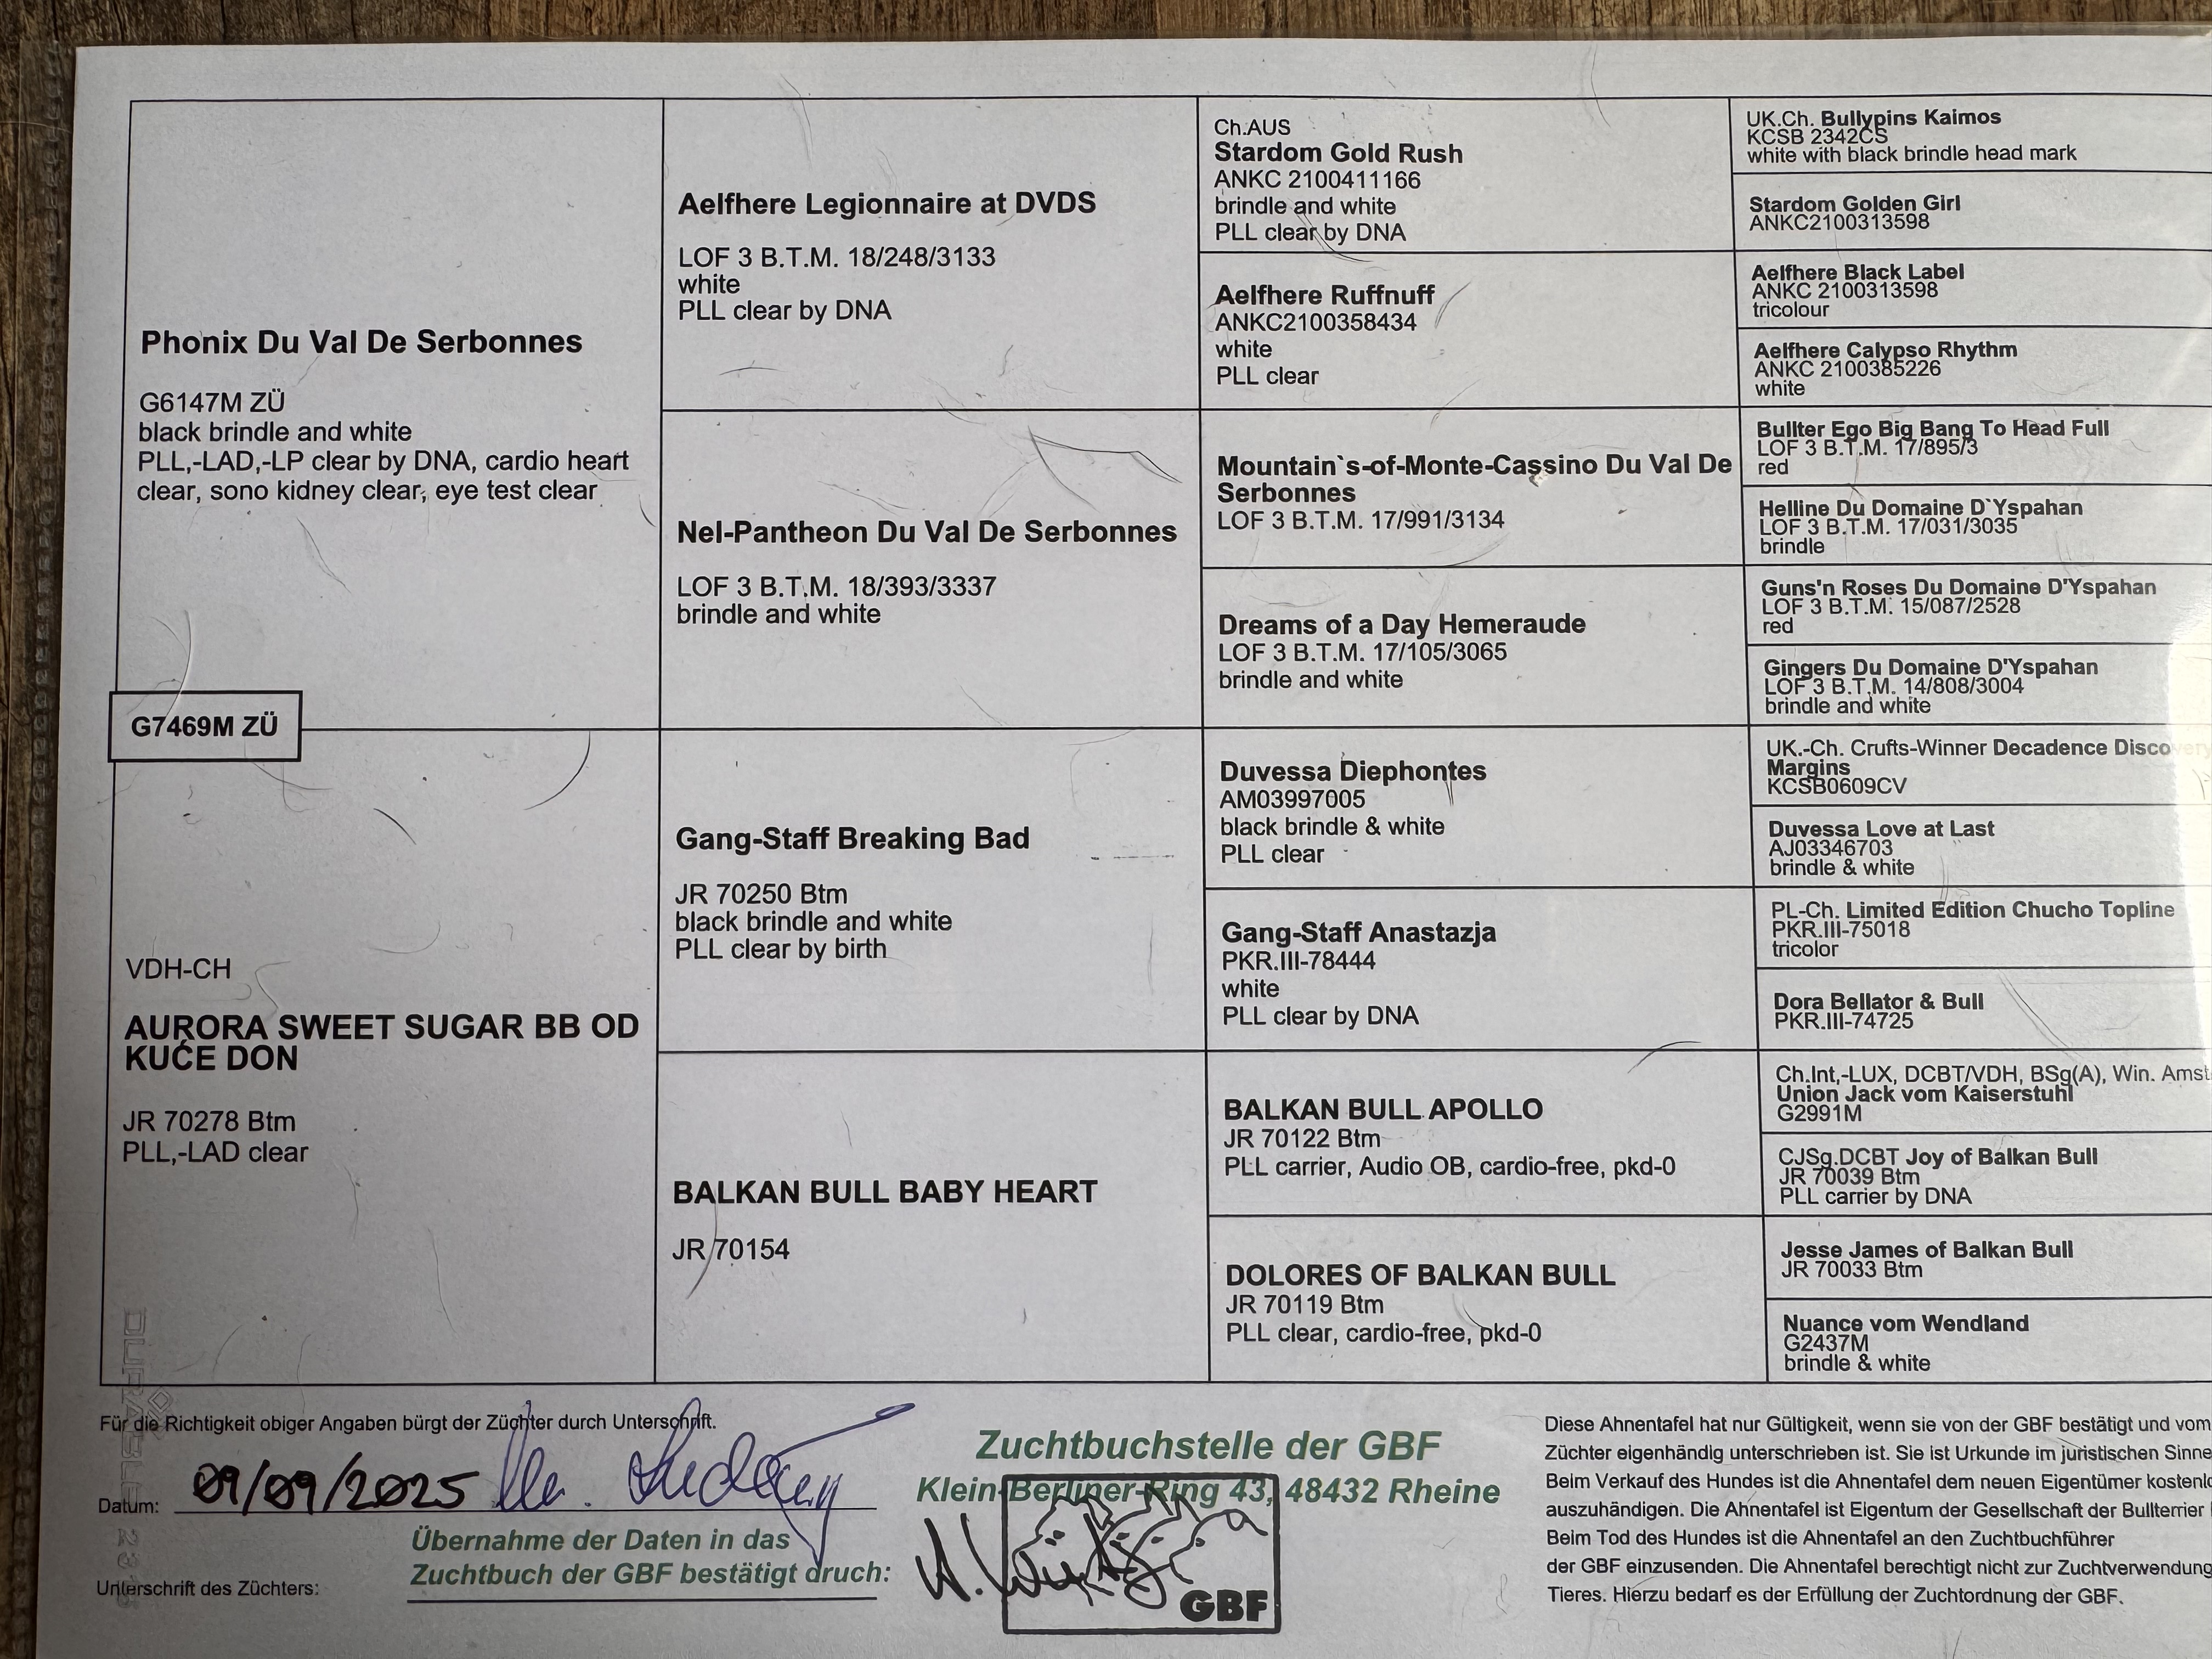 Phonix Du Val De Serbonnes
G6147M ZÜ
black brindle and white
PLL,-LAD,-LP clear by DNA, cardio heart
clear, sono kidney clear, eye test clear
G7469M ZÜ
VDH-CH
AURORA SWEET SUGAR BB OD
KUĆE DON
JR 70278 Btm
PLL,-LAD clear
Aelfhere Legionnaire at DVDS
LOF 3 B.T.M. 18/248/3133
white
PLL clear by DNA
Nel-Pantheon Du Val De Serbonnes
LOF 3 B.T.M. 18/393/3337
brindle and white
Gang-Staff Breaking Bad
JR 70250 Btm
black brindle and white
PLL clear by birth
BALKAN BULL BABY HEART
JR 70154
Ch.AUS
Stardom Gold Rush
ANKC 2100411166
brindle and white
PLL clear by DNA
Aelfhere Ruffnuff
ANKC2100358434
white
PLL clear
Mountain`s-of-Monte-Cassino Du Val De
Serbonnes
LOF 3 B.T.M. 17/991/3134
Dreams of a Day Hemeraude
LOF 3 B.T.M. 17/105/3065
brindle and white
Duvessa Diephontes
AM03997005
black brindle & white
PLL clear
Gang-Staff Anastazja
PKR.III-78444
white
PLL clear by DNA
BALKAN BULL APOLLO
JR 70122 Btm
PLL carrier, Audio OB, cardio-free, pkd-0
DOLORES OF BALKAN BULL
JR 70119 Btm
PLL clear, cardio-free, pkd-0
UK.Ch. Bullypins Kaimos
KCSB 2342CS
white with black brindle head mark
Stardom Golden Girl
ANKC2100313598
Aelfhere Black Label
ANKC 2100313598
tricolour
Aelfhere Calypso Rhythm
ANKC 2100385226
white
Bullter Ego Big Bang To Head Full
LOF 3 B.T.M. 17/895/3
red
Helline Du Domaine D`Yspahan
LOF 3 B.T.M. 17/031/3035
brindle
Guns'n Roses Du Domaine D'Yspahan
LOF 3 B.T.M. 15/087/2528
red
Gingers Du Domaine D'Yspahan
LOF 3 B.T.M. 14/808/3004
brindle and white
UK.-Ch. Crufts-Winner Decadence Discovery
Margins
KCSB0609CV
Duvessa Love at Last
AJ03346703
brindle & white
PL-Ch. Limited Edition Chucho Topline
PKR.III-75018
tricolor
Dora Bellator & Bull
PKR.III-74725
Ch.Int,-LUX, DCBT/VDH, BSg(A), Win. Amst
Union Jack vom Kaiserstuhl
G2991M
CJSg.DCBT Joy of Balkan Bull
JR 70039 Btm
PLL carrier by DNA
Jesse James of Balkan Bull
JR 70033 Btm
Nuance vom Wendland
G2437M
brindle & white
Für die Richtigkeit obiger Angaben bürgt der Züchter durch Unterschrift.
Datum: 09/09/2025
Unterschrift des Züchters:
Übernahme der Daten in das
Zuchtbuch der GBF bestätigt druch:
Zuchtbuchstelle der GBF
Klein-Berliner-Ring 43, 48432 Rheine
GBF
Diese Ahnentafel hat nur Gültigkeit, wenn sie von der GBF bestätigt und vom
Züchter eigenhändig unterschrieben ist. Sie ist Urkunde im juristischen Sinne
Beim Verkauf des Hundes ist die Ahnentafel dem neuen Eigentümer kostenlo
auszuhändigen. Die Ahnentafel ist Eigentum der Gesellschaft der Bullterrier
Beim Tod des Hundes ist die Ahnentafel an den Zuchtbuchführer
der GBF einzusenden. Die Ahnentafel berechtigt nicht zur Zuchtverwendung
Tieres. Hierzu bedarf es der Erfüllung der Zuchtordnung der GBF.
DURABLE